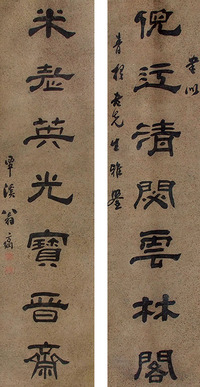 倪迂清閟雲林閣
先生雅鑒
米老英光寶晉齋
覃溪翁方綱